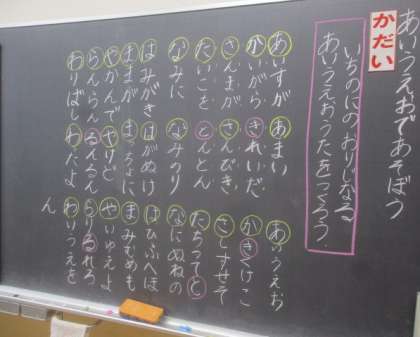 あいうえおであそぼう
かだい
いちのにの おりじなる
あいうえおうたをつくろう。
あいすが あまい あいうえお
かいがら きれいだ かきくけこ
さんまが さんびき さしすせそ
たいこを とんとん たちつてと
なみに なみのり なにぬねの
はみがき はがぬけ はひふへほ
ままが まみむめも
やかんで やいゆえよ
らんらん るんるん らりるれろ
わりばし わたよ わいうえを
ん